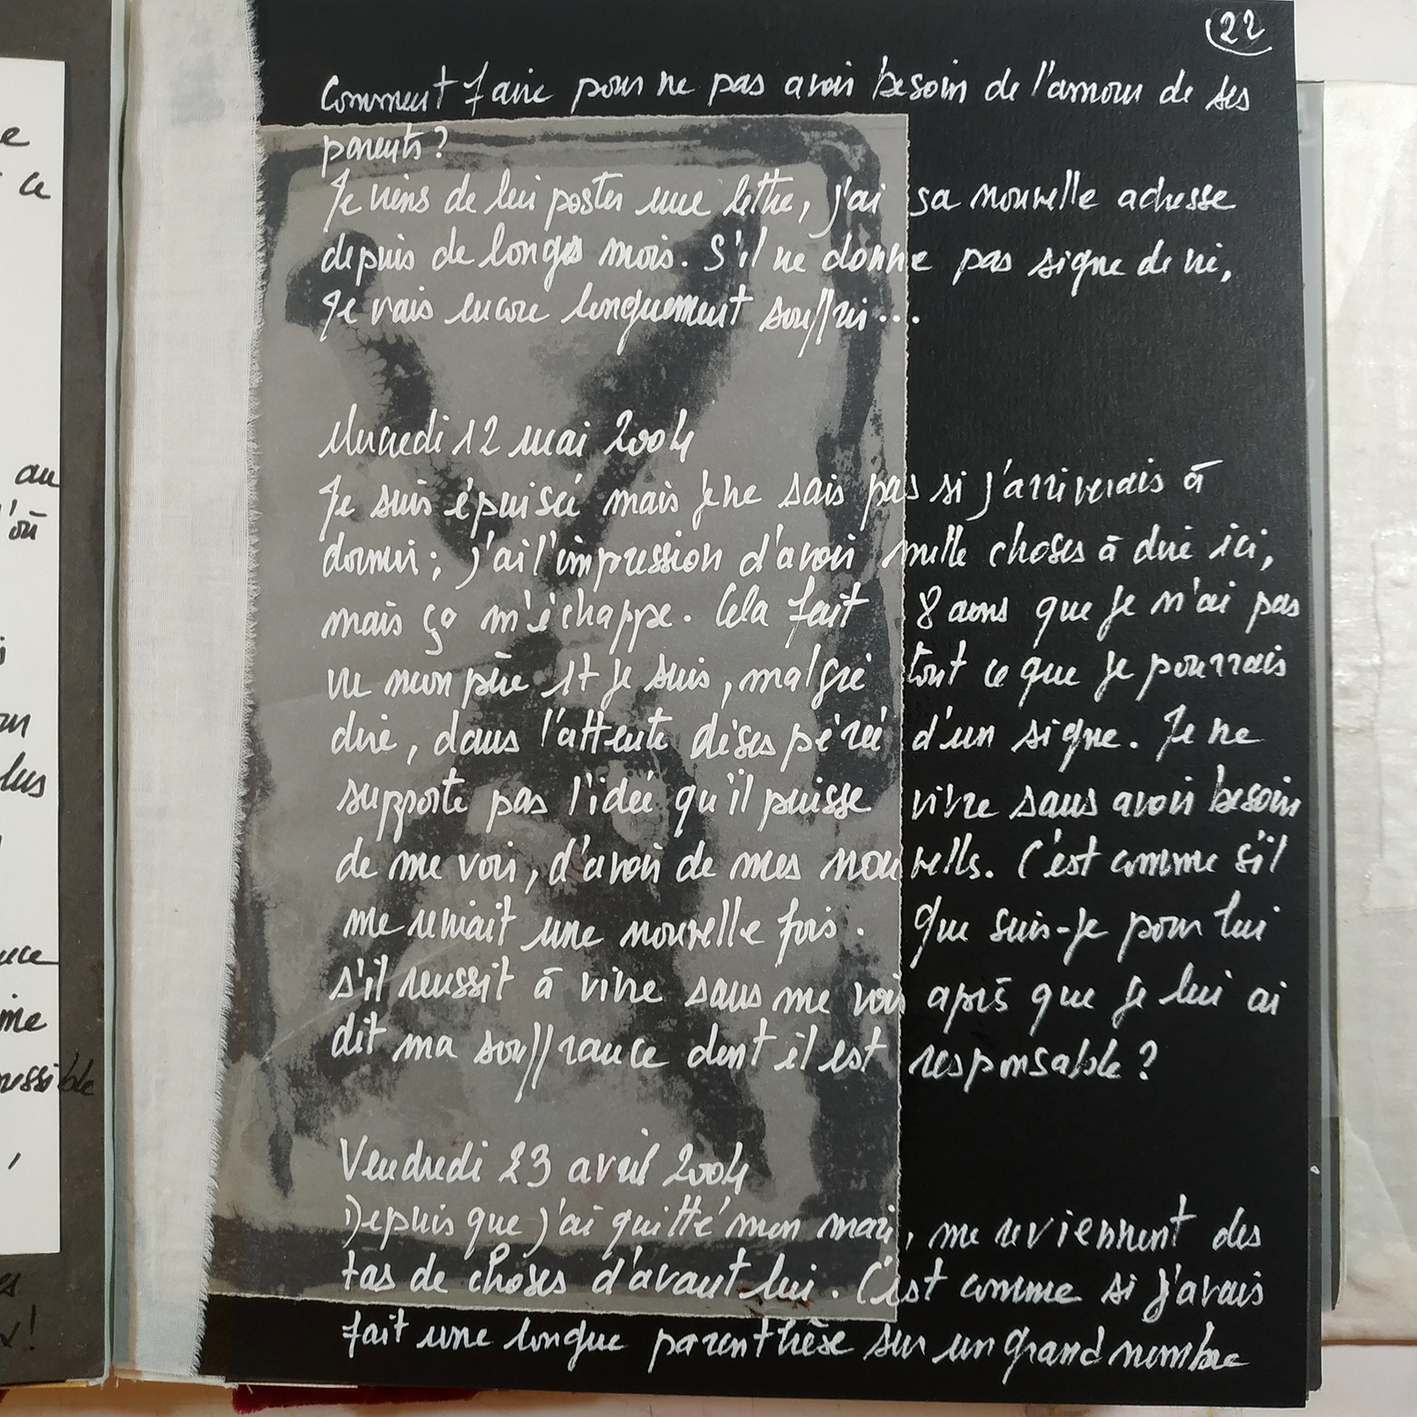 22
Comment faire pour ne pas avoir besoin de l'amour de ses
parents ?
Je viens de lui poster une lettre, j'ai sa nouvelle adresse
depuis de longs mois. S'il ne donne pas signe de vie,
Je vais encore longuement souffrir...
Mercredi 12 mai 2004
Je suis épuisée mais je ne sais pas si j'arriverais à
dormir ; j'ai l'impression d'avoir mille choses à dire ici,
mais ça m'échappe. Cela fait 8 ans que je n'ai pas
vu mon père et je suis, malgré tout ce que je pourrais
dire, dans l'attente désespérée d'un signe. Je ne
supporte pas l'idée qu'il puisse vivre sans avoir besoin
de me voir, d'avoir de mes nouvelles. C'est comme s'il
me reniait une nouvelle fois. Que suis-je pour lui
s'il reussit à vivre sans me voir après que je lui ai
dit ma souffrance dont il est responsable ?
Vendredi 23 avril 2004
Depuis que j'ai quitté mon mari, me reviennent des
tas de choses d'avant lui. C'est comme si j'avais
fait une longue parenthèse sur un grand nombre
e
ce
au
'où
lus
me
possible
,
!